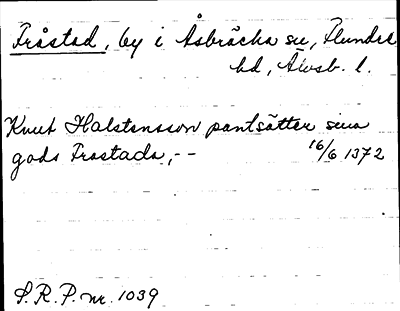 Fråstad, by i Åsbräcka sn, Flundre
hd, Älvsb. l.
Knut Halstensson pantsätter sina
gods Frastada, -- 16/6 1372
S.R.P. nr. 1039